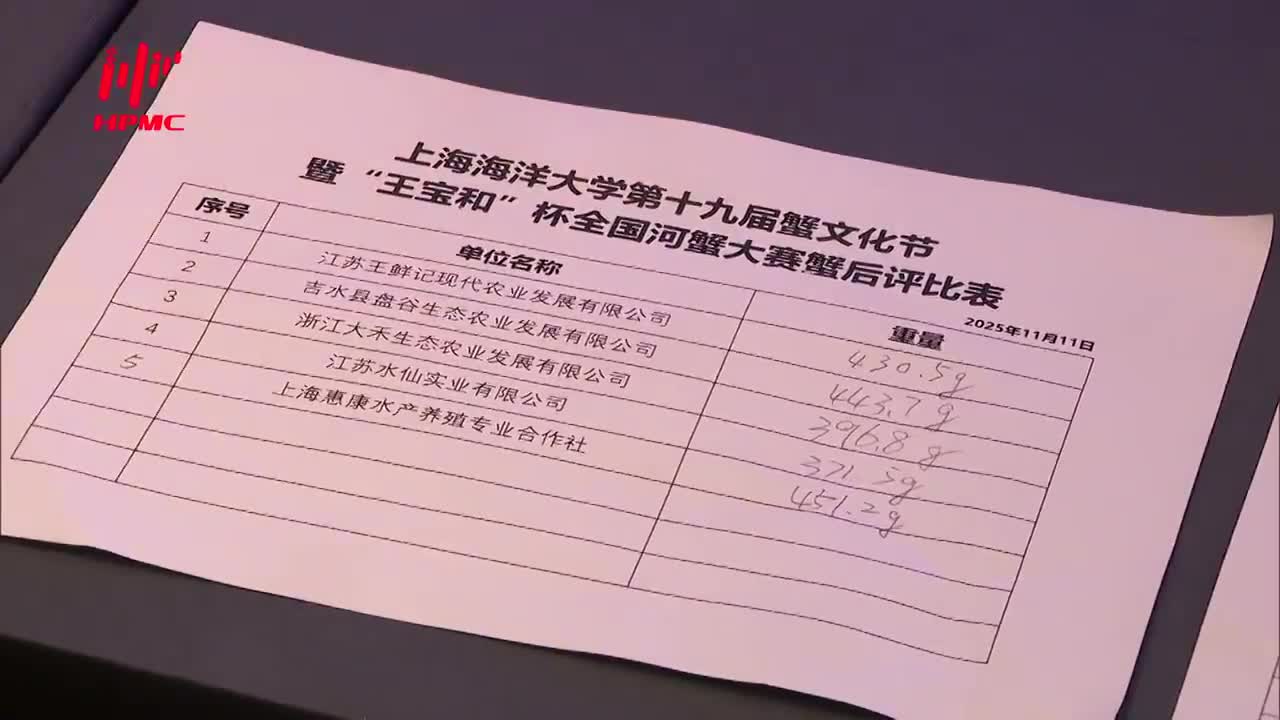 HPMC
上海海洋大学第十九届蟹文化节
暨“王宝和”杯全国河蟹大赛蟹后评比表
2025年11月11日
序号 单位名称 重量
1 江苏王鲜记现代农业发展有限公司 430.5g
2 吉水县盘谷生态农业发展有限公司 443.7g
3 浙江大禾生态农业发展有限公司 396.8g
4 江苏水仙实业有限公司 371.5g
5 上海惠康水产养殖专业合作社 451.2g